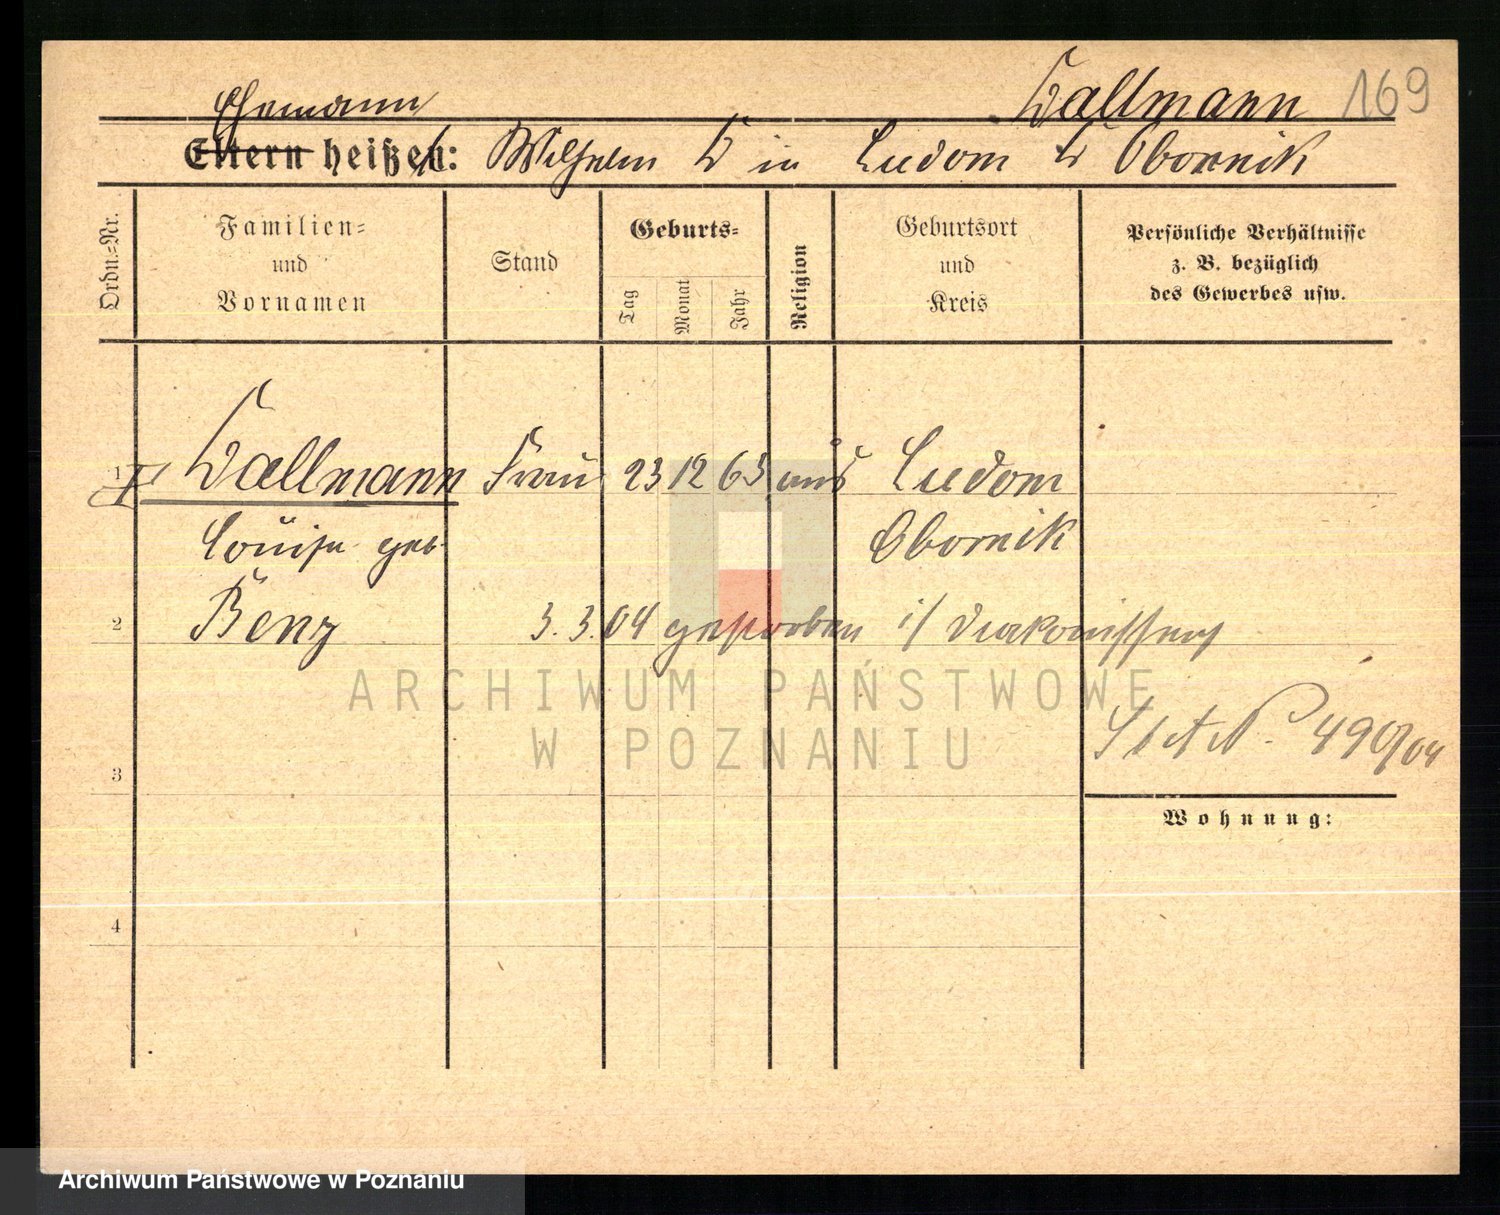 Ehemann Wallmann 169
Eltern heißen: Wilhelm W in Ludom Kr Obornik
Ordn.=Nr.
Familien=
und
Vornamen
Stand
Geburts=
Tag
Monat
Jahr
Religion
Geburtsort
und
Kreis
Persönliche Verhältnisse
z. B. bezüglich
des Gewerbes usw.
1 Wallmann Frau 23 12 63 aus Ludom
Louise geb. Obornik
2 Benz 3. 3. 04 gestorben i/ Diakonissenh
St A N. 490/04
3
Wohnung:
4
ARCHIWUM PAŃSTWOWE
W POZNANIU
Archiwum Państwowe w Poznaniu